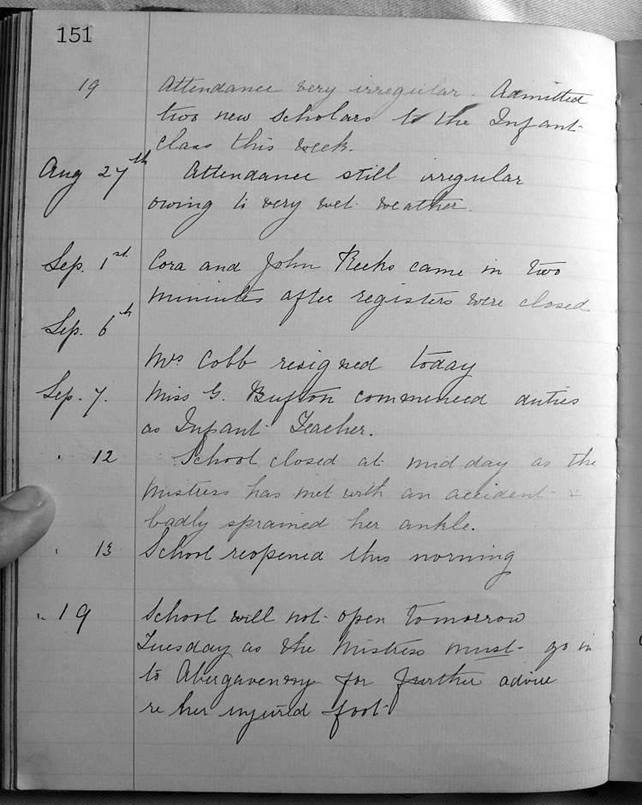 151
19 Attendance very irregular. Admitted
two new scholars to the Infant
class this week.
Aug 27th Attendance still irregular
owing to very wet weather.
Sep. 1st Cora and John Reeks came in two
minutes after registers were closed
Sep. 6th
Mrs Cobb resigned today
Sep. 7. Miss G. Bufton commenced duties
as Infant Teacher.
" 12 School closed at mid day as the
Mistress has met with an accident &
badly sprained her ankle.
" 13 School reopened this morning
" 19 School will not open tomorrow
Tuesday as the Mistress must go in
to Abergavenny for further advice
re her injured foot